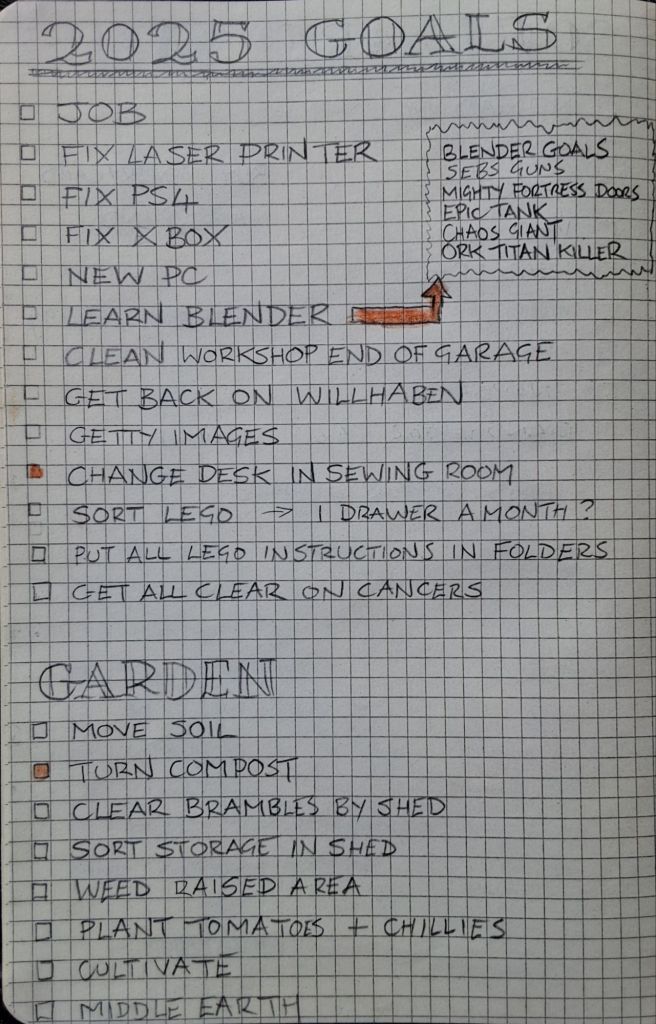 2025 GOALS
JOB
FIX LASER PRINTER
FIX PS4
FIX XBOX
NEW PC
LEARN BLENDER
BLENDER GOALS
SEBS GUNS
MIGHTY FORTRESS DOORS
EPIC TANK
CHAOS GIANT
ORK TITAN KILLER
CLEAN WORKSHOP END OF GARAGE
GET BACK ON WILLHABEN
GETTY IMAGES
CHANGE DESK IN SEWING ROOM
SORT LEGO → 1 DRAWER A MONTH?
PUT ALL LEGO INSTRUCTIONS IN FOLDERS
GET ALL CLEAR ON CANCERS
GARDEN
MOVE SOIL
TURN COMPOST
CLEAR BRAMBLES BY SHED
SORT STORAGE IN SHED
WEED RAISED AREA
PLANT TOMATOES + CHILLIES
CULTIVATE
MIDDLE EARTH